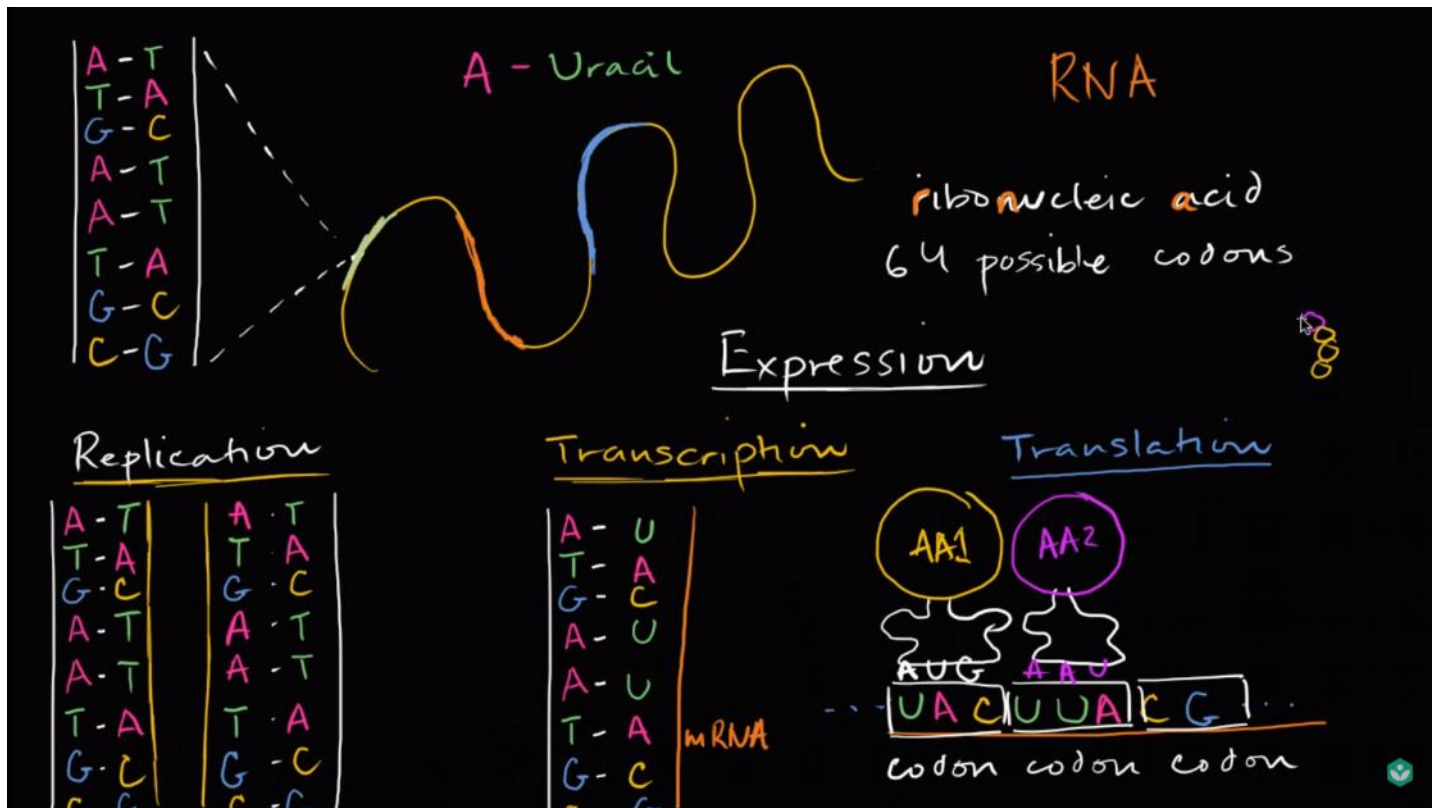 A - T
T - A
G - C
A - T
A - T
T - A
G - C
C - G
A - Uracil
RNA
ribonucleic acid
64 possible codons
Expression
Replication
A - T
T - A
G - C
A - T
A - T
T - A
G - C
A - T
T - A
G - C
A - T
A - T
T - A
G - C
Transcription
A - U
T - A
G - C
A - U
A - U
T - A
G - C
mRNA
Translation
AA1 AA2
AUG AAU
UAC UUA CG
codon codon codon